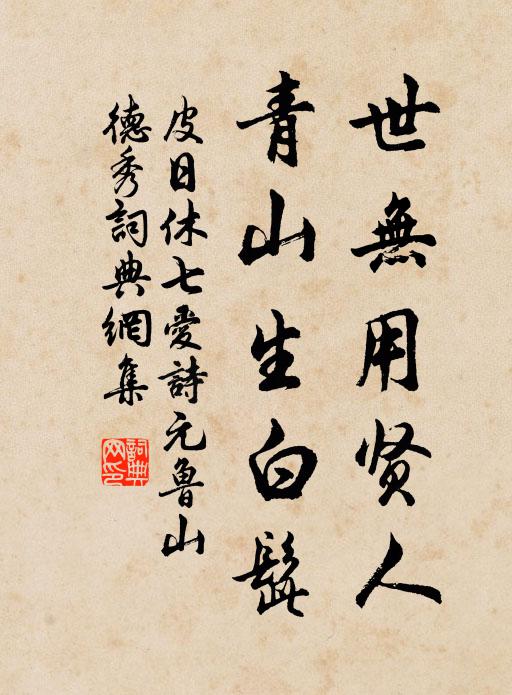 世無用贤人
青山生白髭
皮日休七愛詩元魯山
德秀詞典網集
詞典网印